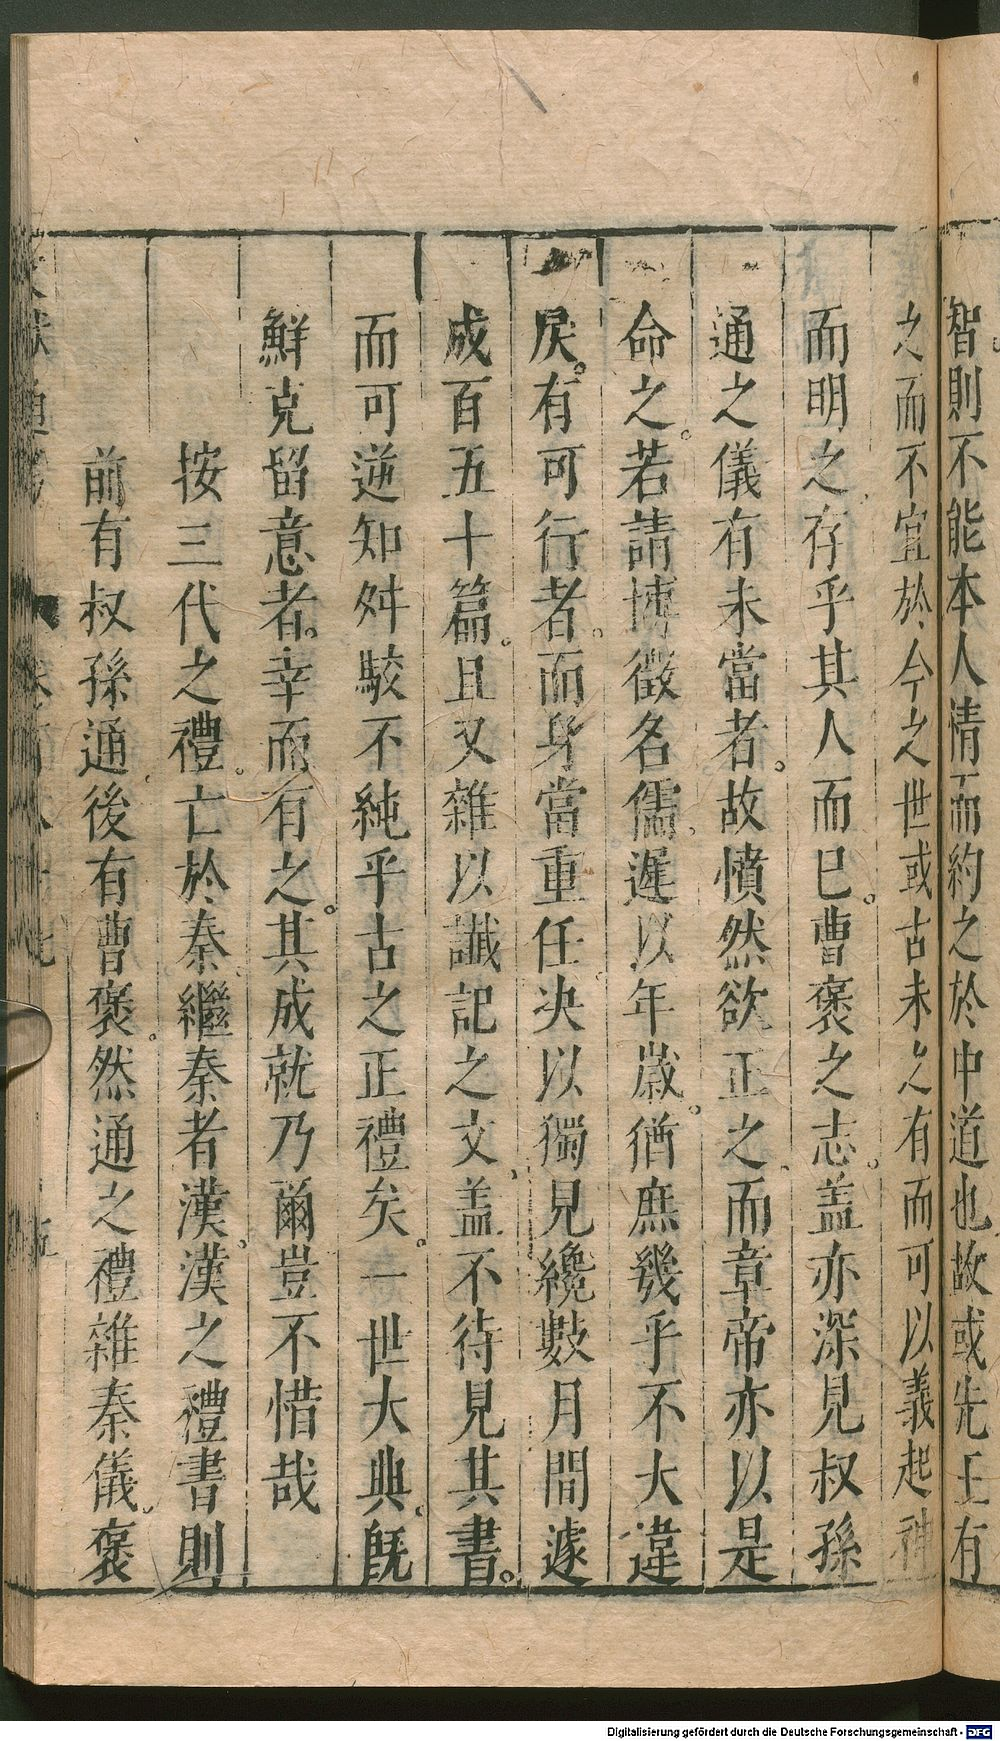 智則不能本人情而約之於中道也故或先王有
之而不宜於今之世或古未之有而可以義起神
而明之存乎其人而已曹褒之志蓋亦深見叔孫
通之儀有未當者故憤然欲正之而章帝亦以是
命之若請博徵名儒遲以年歲猶庶幾乎不大違
戾有可行者而身當重任决以獨見纔數月間遽
成百五十篇且又雜以讖記之文蓋不待見其書
而可逆知舛駁不純乎古之正禮矣一世大典旣
鮮克留意者幸而有之其成就乃爾豈不惜哉
按三代之禮亡於秦繼秦者漢漢之禮書則
前有叔孫通後有曹褒然通之禮雜秦儀褒
Digitalisierung gefördert durch die Deutsche Forschungsgemeinschaft - DFG